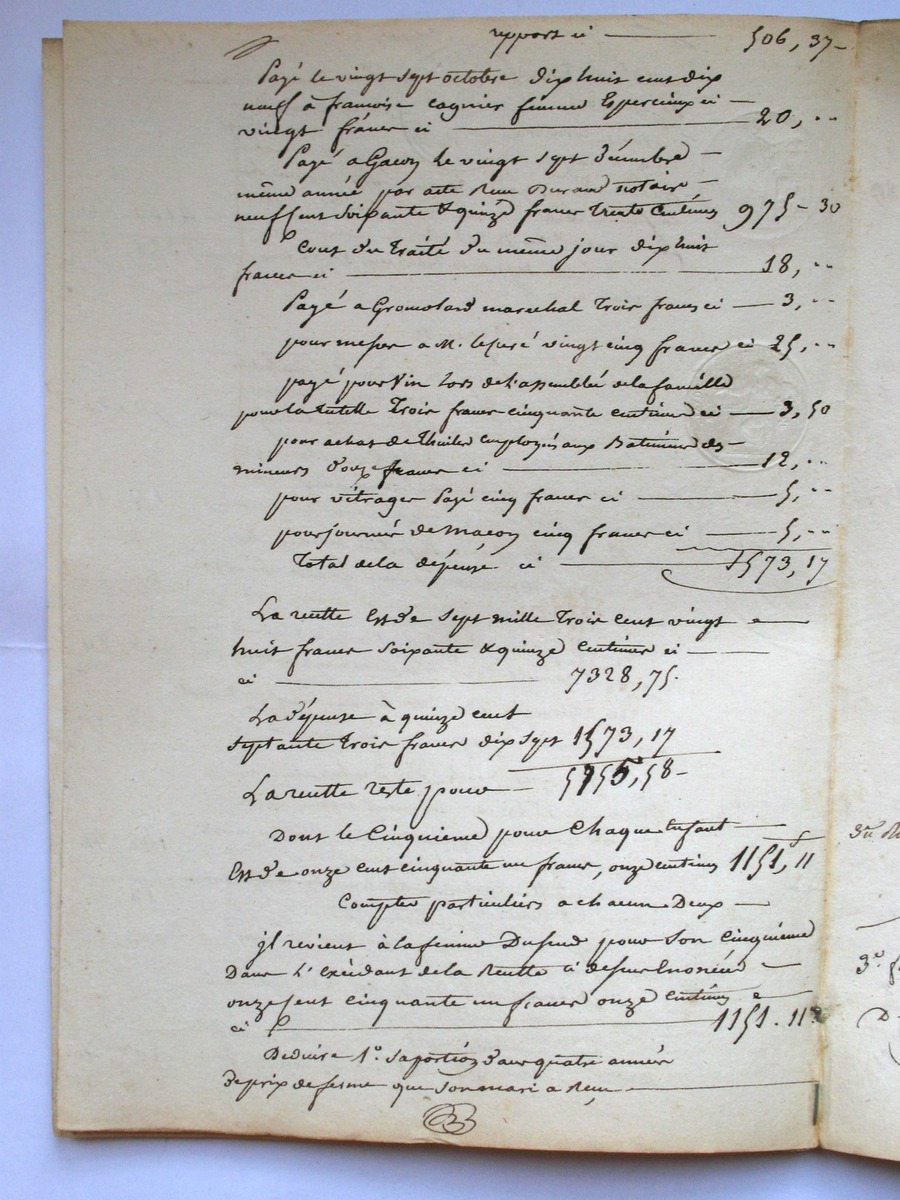 report ci 506, 37
Payé le vingt sept octobre dix huit cent dix
neuf à francoise cagnier femme Esperieux ci
vingt francs ci 20, ..
Payé a Gacon le vingt sept décembre
même année par acte Reçu Durand notaire
neuf cent soixante & quinze francs trente centimes 975 - 30
Cout du traité du même jour dix huit
francs ci 18, ..
Payé a Gromolard marechal trois francs ci 3, ..
pour messes a M. le curé vingt cinq francs ci 25, ..
payé pour vin lors de l'assemblée de la famille
pour la tutelle trois francs cinquante centimes ci 3, 50
pour achat de thuiles employés aux Batiments des
mineurs douze francs ci 12, ..
pour vitrages payé cinq francs ci 5, ..
pour journés de macon cinq francs ci 5, ..
Total de la dépense ci 1573, 17
La recette est de sept mille trois cent vingt
huit francs soixante & quinze centimes ci
ci 7328, 75.
La dépense à quinze cent
septante trois francs dix sept 1573, 17
La recette reste pour 5755, 58
Dont le cinquieme pour chaque enfant
est de onze cent cinquante un francs, onze centimes 1151, 11
Comptes particuliers a chacun Deux
jl revient à la femme Dufeud pour son cinquième
Dans l'excédant de la recette ci dessus énoncée
onze cent cinquante un francs onze centimes
ci 1151 . 11
Deduire 1º sa portion d'aux quatre années
de prix de ferme que son mari a Reçu
3º f
D